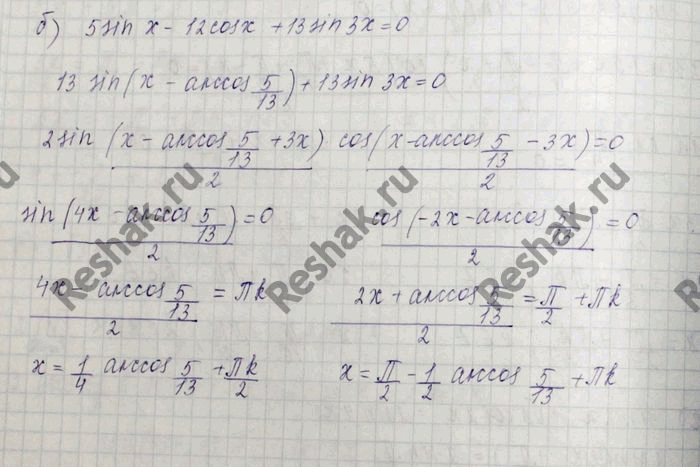 б) 5sin x - 12cos x + 13 sin 3x = 0
13 sin(x - arccos 5/13) + 13 sin 3x = 0
2 sin (x - arccos 5/13 + 3x)/2 cos (x - arccos 5/13 - 3x)/2 = 0
sin (4x - arccos 5/13)/2 = 0 cos (-2x - arccos 5/13)/2 = 0
(4x - arccos 5/13)/2 = πk (2x + arccos 5/13)/2 = π/2 + πk
x = 1/4 arccos 5/13 + πk/2 x = π/2 - 1/2 arccos 5/13 + πk
Reshak.ru
Reshak.ru
Reshak.ru